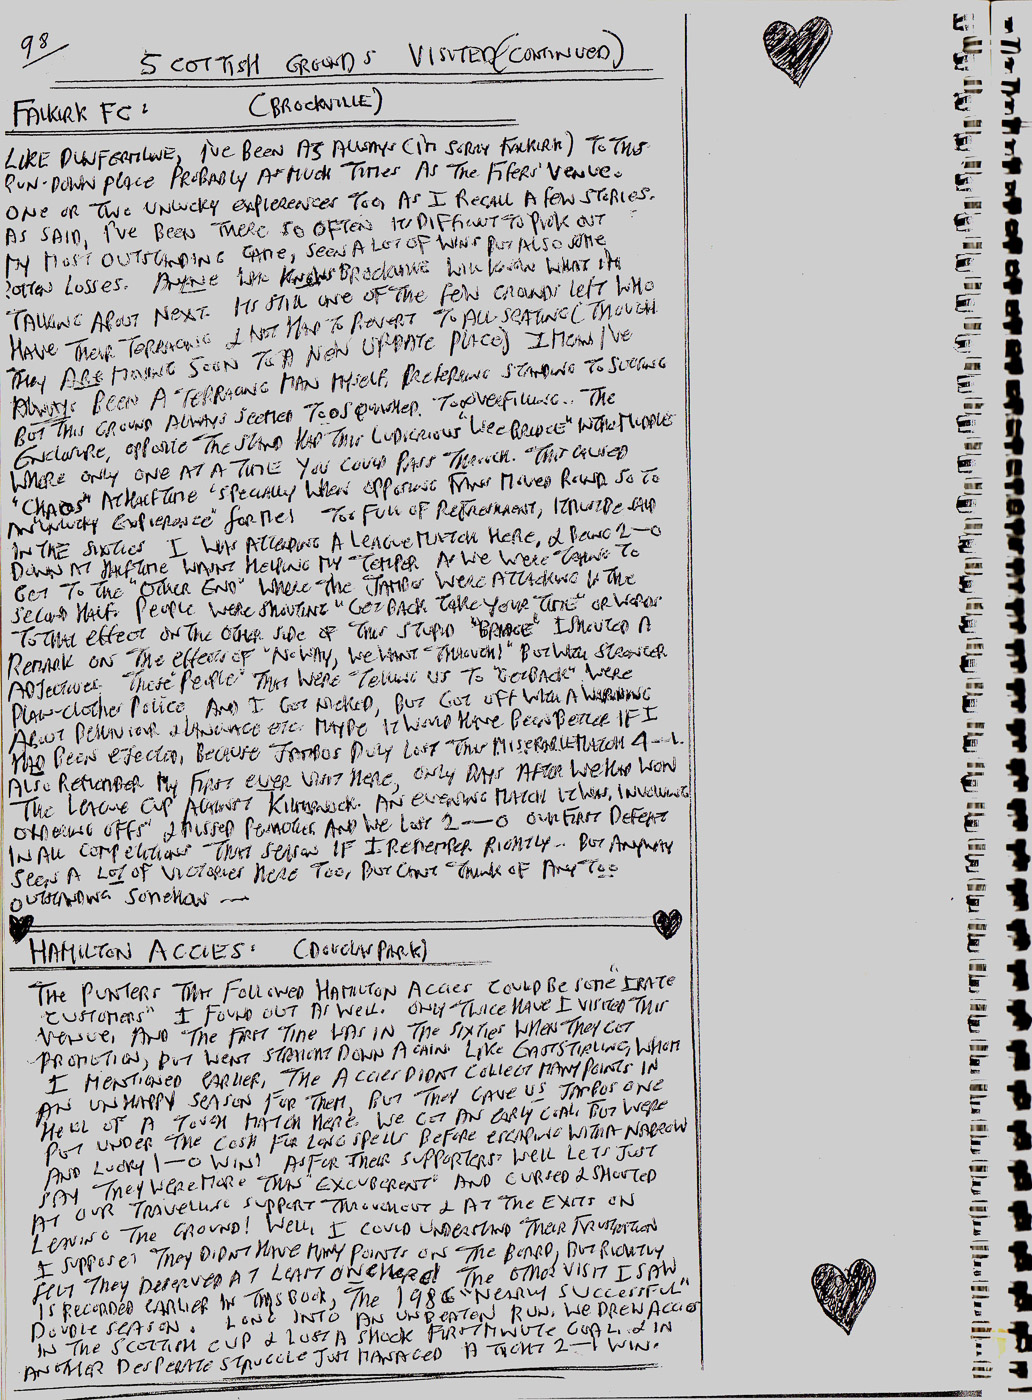 98
SCOTTISH GROUNDS VISITED (CONTINUED)
FALKIRK FC: (BROCKVILLE)
LIKE DUNFERMLINE, I'VE BEEN AS ALWAYS (I'M SORRY FALKIRK) TO THIS
RUN-DOWN PLACE PROBABLY AS MUCH TIMES AS THE FIFERS' VENUE.
ONE OR TWO UNLUCKY EXPIERENCES TOO, AS I RECALL A FEW STORIES.
AS SAID, I'VE BEEN THERE SO OFTEN ITS DIFFICULT TO PICK OUT
MY MOST OUTSTANDING GAME, SEEN A LOT OF WINS BUT ALSO SOME
ROTTEN LOSSES. ANYONE WHO KNOWS BROCKVILLE WILL KNOW WHAT I'M
TALKING ABOUT NEXT. ITS STILL ONE OF THE FEW GROUNDS LEFT WHO
HAVE THEIR TERRACING & NOT HAD TO REVERT TO ALL-SEATING (THOUGH
THEY ARE MOVING SOON TO A NEW UPDATE PLACE) I MEAN I'VE
ALWAYS BEEN A TERRACING MAN MYSELF, PREFERRING STANDING TO SITTING
BUT THIS GROUND ALWAYS SEEMED TOO SQUASHED. TO OVERFILLING.. THE
ENCLOSURE, OPPOSITE THE STAND HAD THIS LUDICRIOUS "WEE BRIDGE" IN THE MIDDLE
WHERE ONLY ONE AT A TIME YOU COULD PASS THROUGH. THIS CAUSED
"CHAOS" AT HALF TIME 'SPECIALLY WHEN OPPOSING FANS MOVED ROUND SO TO
AN "UNLUCKY EXPIERENCE" FOR ME! TOO FULL OF REFRESHMENT, IT MUST BE SAID
IN THE SIXTIES I WAS ATTENDING A LEAGUE MATCH HERE, & BEING 2-0
DOWN AT HALFTIME WASNT HELPING MY TEMPER AS WE WERE TRYING TO
GET TO THE "OTHER END" WHERE THE JAMBOS WERE ATTACKING IN THE
SECOND HALF. PEOPLE WERE SHOUTING "GET BACK TAKE YOUR TIME" OR WORDS
TO THAT EFFECT ON THE OTHER SIDE OF THIS STUPID "BRIDGE" I SHOUTED A
REMARK ON THE EFFECTS OF "NO WAY, WE WANT THROUGH!" BUT WITH STRONGER
ADJECTIVES. THESE "PEOPLE" THAT WERE TELLING US TO "GET BACK" WERE
PLAIN-CLOTHES POLICE AND I GOT NICKED, BUT GOT OFF WITH A WARNING
ABOUT BEHAVIOUR & LANGUAGE ETC. MAYBE IT WOULD HAVE BEEN BETTER IF I
HAD BEEN EJECTED, BECAUSE JAMBOS DULY LOST THIS MISERABLE MATCH 4-1.
ALSO REMEMBER MY FIRST EVER VISIT HERE, ONLY DAYS AFTER WE HAD WON
THE LEAGUE CUP AGAINST KILMARNOCK. AN EVENING MATCH IT WAS, INVOLVING
ORDERING OFFS" & MISSED PENALTIES AND WE LOST 2-0 OUR FIRST DEFEAT
IN ALL COMPETITIONS THAT SEASON IF I REMEMBER RIGHTLY.. BUT ANYWAY
SEEN A LOT OF VICTORIES HERE TOO, BUT CANT THINK OF ANY TOO
OUTSTANDING SOMEHOW —
HAMILTON ACCIES: (DOUGLAS PARK)
THE PUNTERS THAT FOLLOWED HAMILTON ACCIES COULD BE SOME "IRATE
CUSTOMERS" I FOUND OUT AS WELL. ONLY TWICE HAVE I VISITED THIS
VENUE, AND THE FIRST TIME WAS IN THE SIXTIES WHEN THEY GOT
PROMOTION, BUT WENT STRAIGHT DOWN AGAIN. LIKE EASTSTIRLING, WHOM
I MENTIONED EARLIER, THE ACCIES DIDNT COLLECT MANY POINTS IN
AN UNHAPPY SEASON FOR THEM, BUT THEY GAVE US JAMBOS ONE
HELL OF A TOUGH MATCH HERE. WE GOT AN EARLY GOAL BUT WERE
PUT UNDER THE COSH FOR LONG SPELLS BEFORE ESCAPING WITH A NARROW
AND LUCKY 1-0 WIN! AS FOR THEIR SUPPORTERS? WELL LETS JUST
SAY THEY WERE MORE THAN "EXCUBERENT" AND CURSED & SHOUTED
AT OUR TRAVELLING SUPPORT THROUGHOUT & AT THE EXITS ON
LEAVING THE GROUND! WELL, I COULD UNDERSTAND THEIR FRUSTRATION
I SUPPOSE? THEY DIDNT HAVE MANY POINTS ON THE BOARD, BUT RIGHTLY
FELT THEY DESERVED AT LEAST ONE HERE! THE OTHER VISIT I SAW
IS RECORDED EARLIER IN THIS BOOK, THE 1986 "NEARLY SUCCESSFUL"
DOUBLE SEASON. LONG INTO AN UNBEATEN RUN, WE DREW ACCIES
IN THE SCOTTISH CUP & LOST A SHOCK FIRST MINUTE GOAL, & IN
ANOTHER DESPERATE STRUGGLE JUST MANAGED A TIGHT 2-1 WIN.